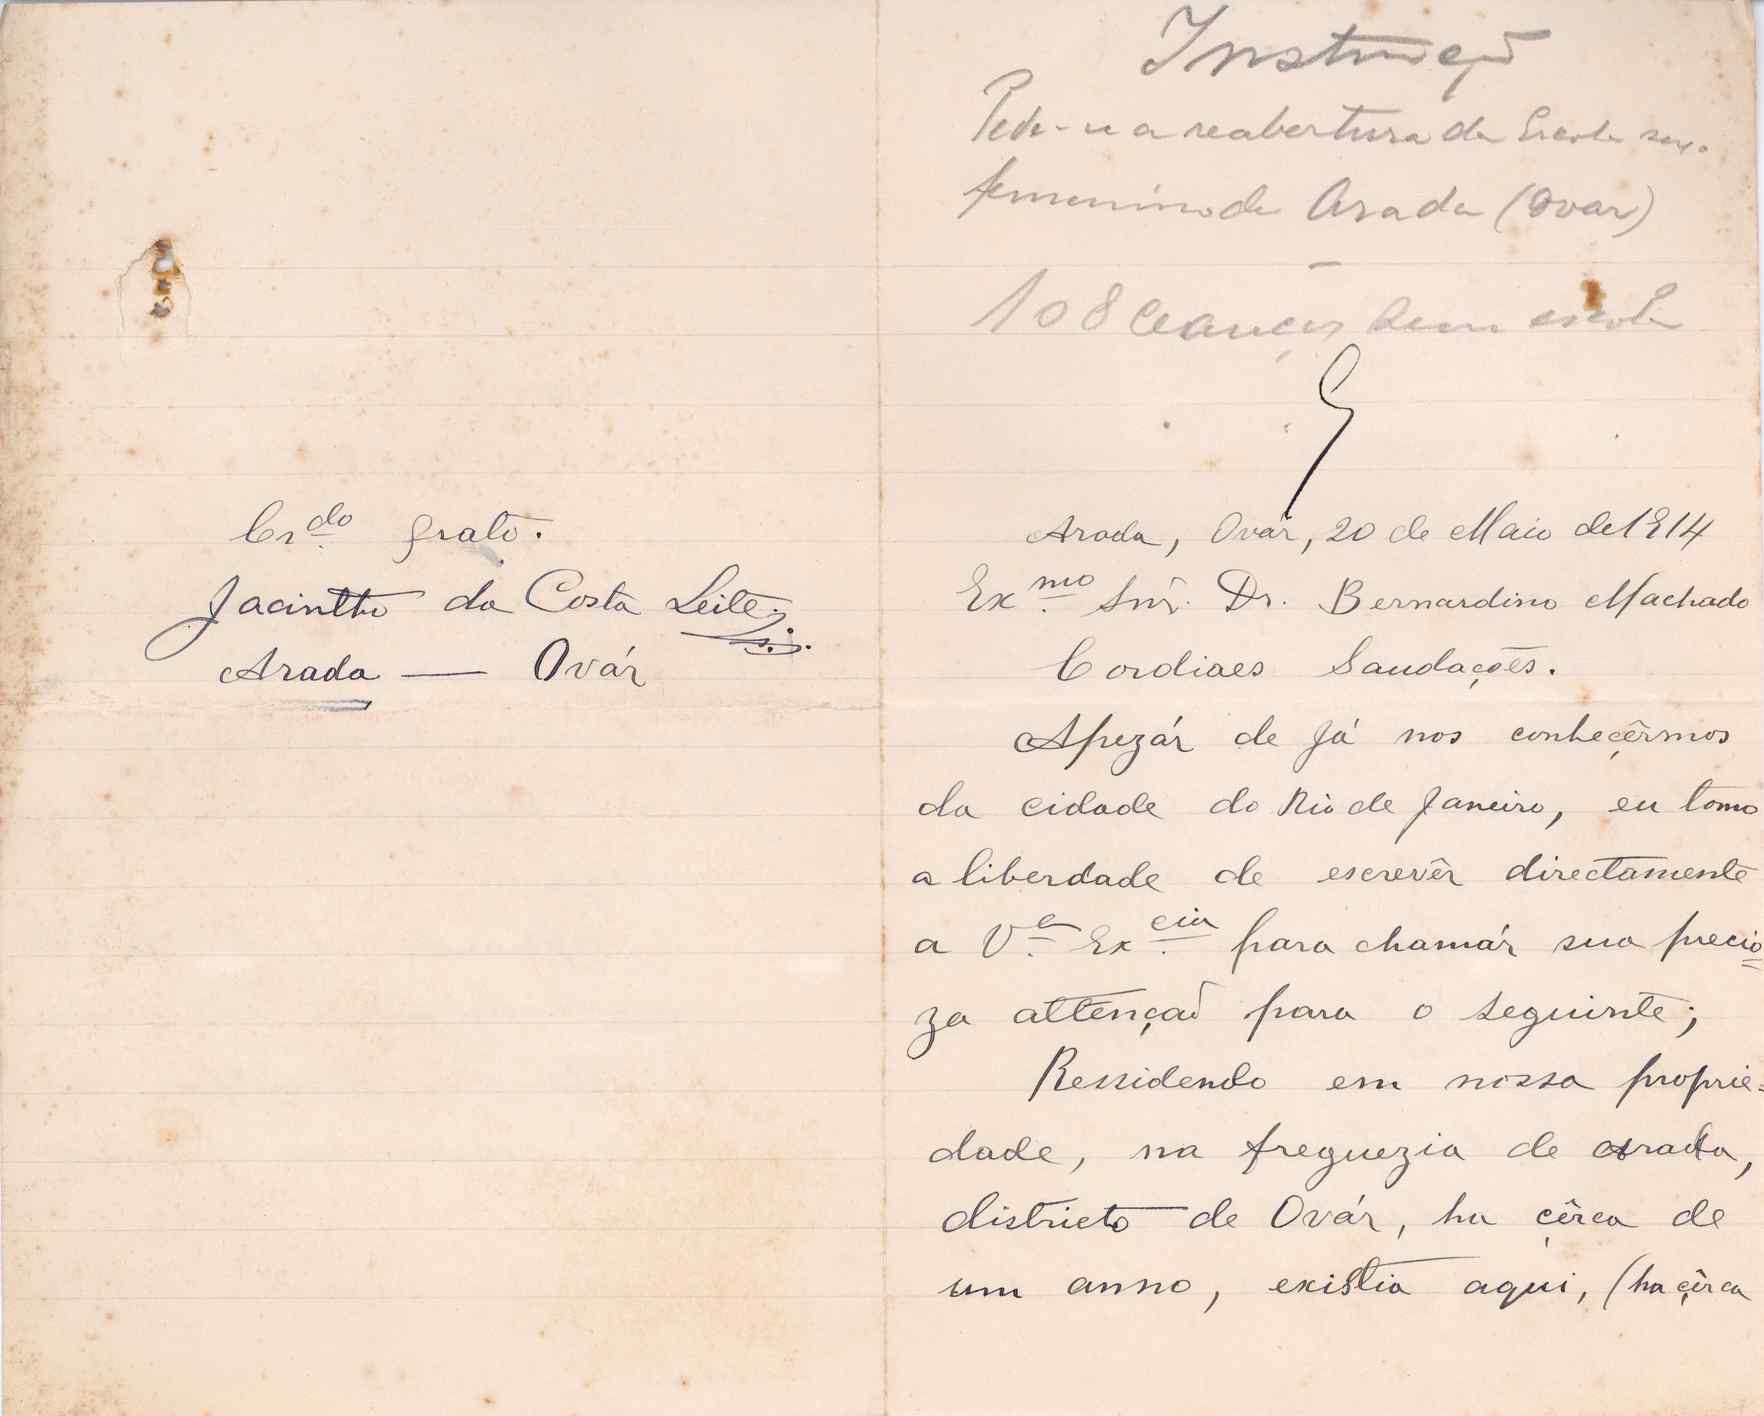 Cr.do grato.
Jacintho da Costa Leite
Arada — Ovár
Instrução
Pede-se a reabertura da Escola sex.
femenino de Arada (Ovar)
108 creanças sem escola
Arada, Ovár, 20 de Maio de 1914
Ex.mo Snr. Dr. Bernardino Machado
Cordiaes Saudações.
Apezár de já nos conheçêrmos
da cidade do Rio de Janeiro, eu tomo
a liberdade de escrevêr directamente
a V.a Ex.cia para chamár sua precio=
za attenção para o seguinte;
Ressidendo em nossa proprie=
dade, na freguezia de Arada,
districto de Ovár, ha çêrca de
um anno, existia aqui, (ha çêrca